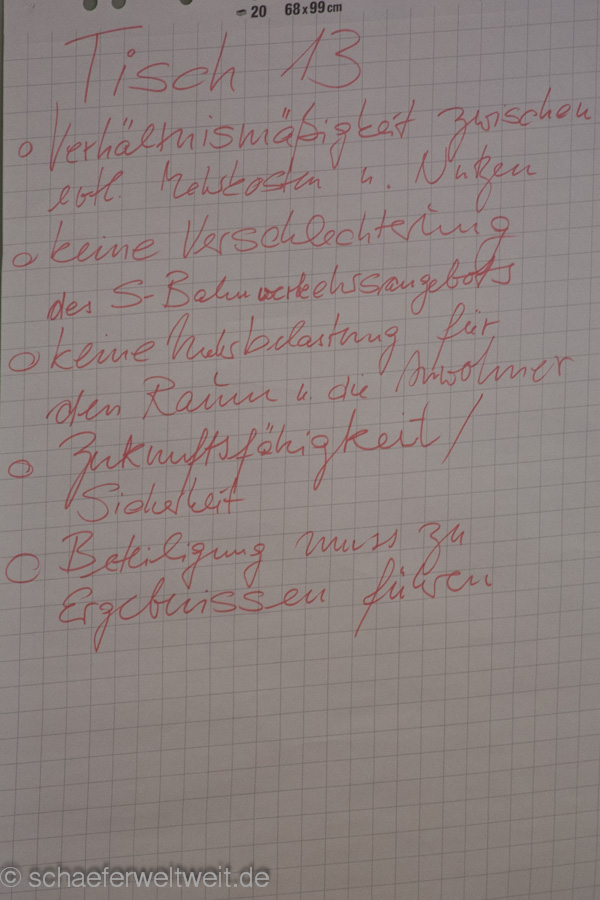 ≈ 20 68x99cm
Tisch 13
o Verhältnismäßigkeit zwischen
evtl. Mehrkosten u. Nutzen
o keine Verschlechterung
des S-Bahnverkehrsangebots
o keine Mehrbelastung für
den Raum u. die Anwohner
o Zukunftsfähigkeit /
Sicherheit
o Beteiligung muss zu
Ergebnissen führen
© schaeferweltweit.de